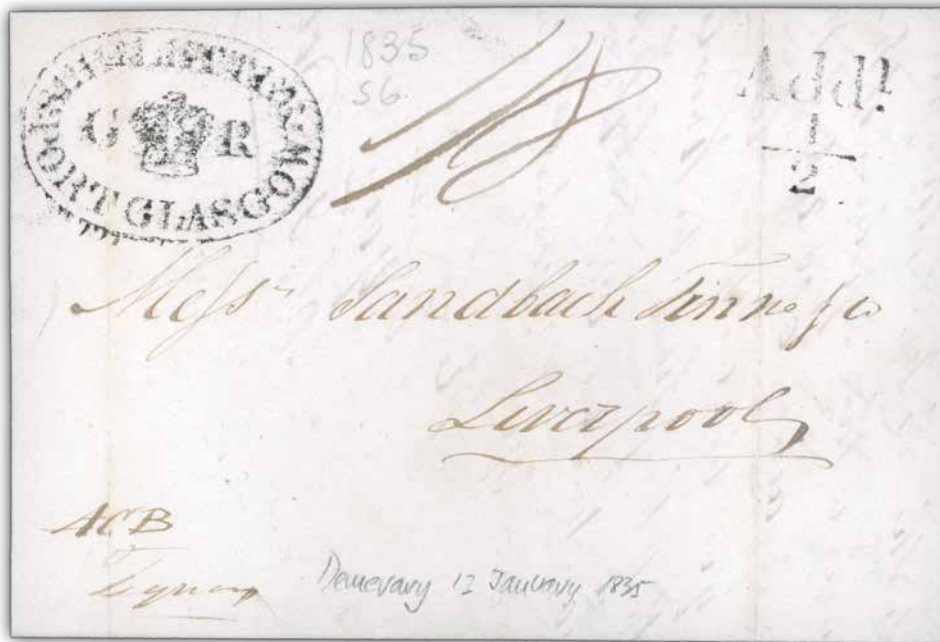 SHIP LETTER
G R
PORT GLASGOW
1835
S6
Addl
1
2
Messrs Sandbach Tinne & Co
Liverpool
Demerary 12 January 1835